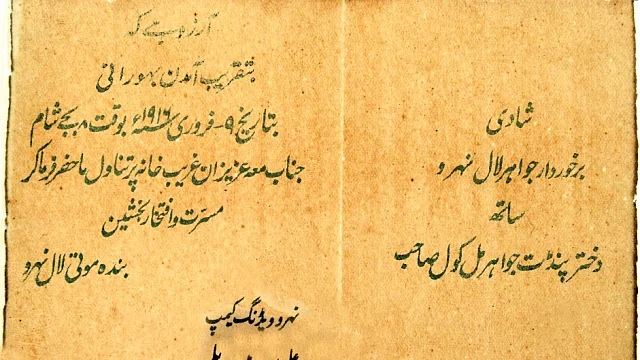 شادی
برخوردار جواہر لال نہرو
ساتھ
دختر پنڈت جواہر مل کول صاحب
آرزو ہے کہ
بتقریب آمدن بہورانی
بتاریخ ۹-فروری سنہ ۱۹۱۶ء بوقت ۸ بجے شام
جناب معہ عزیزان غریب خانہ پر تناول ماحضر فرما کر
مسرت و افتخار بخشیں
بندہ موتی لال نہرو
نہرو ویڈنگ کیمپ